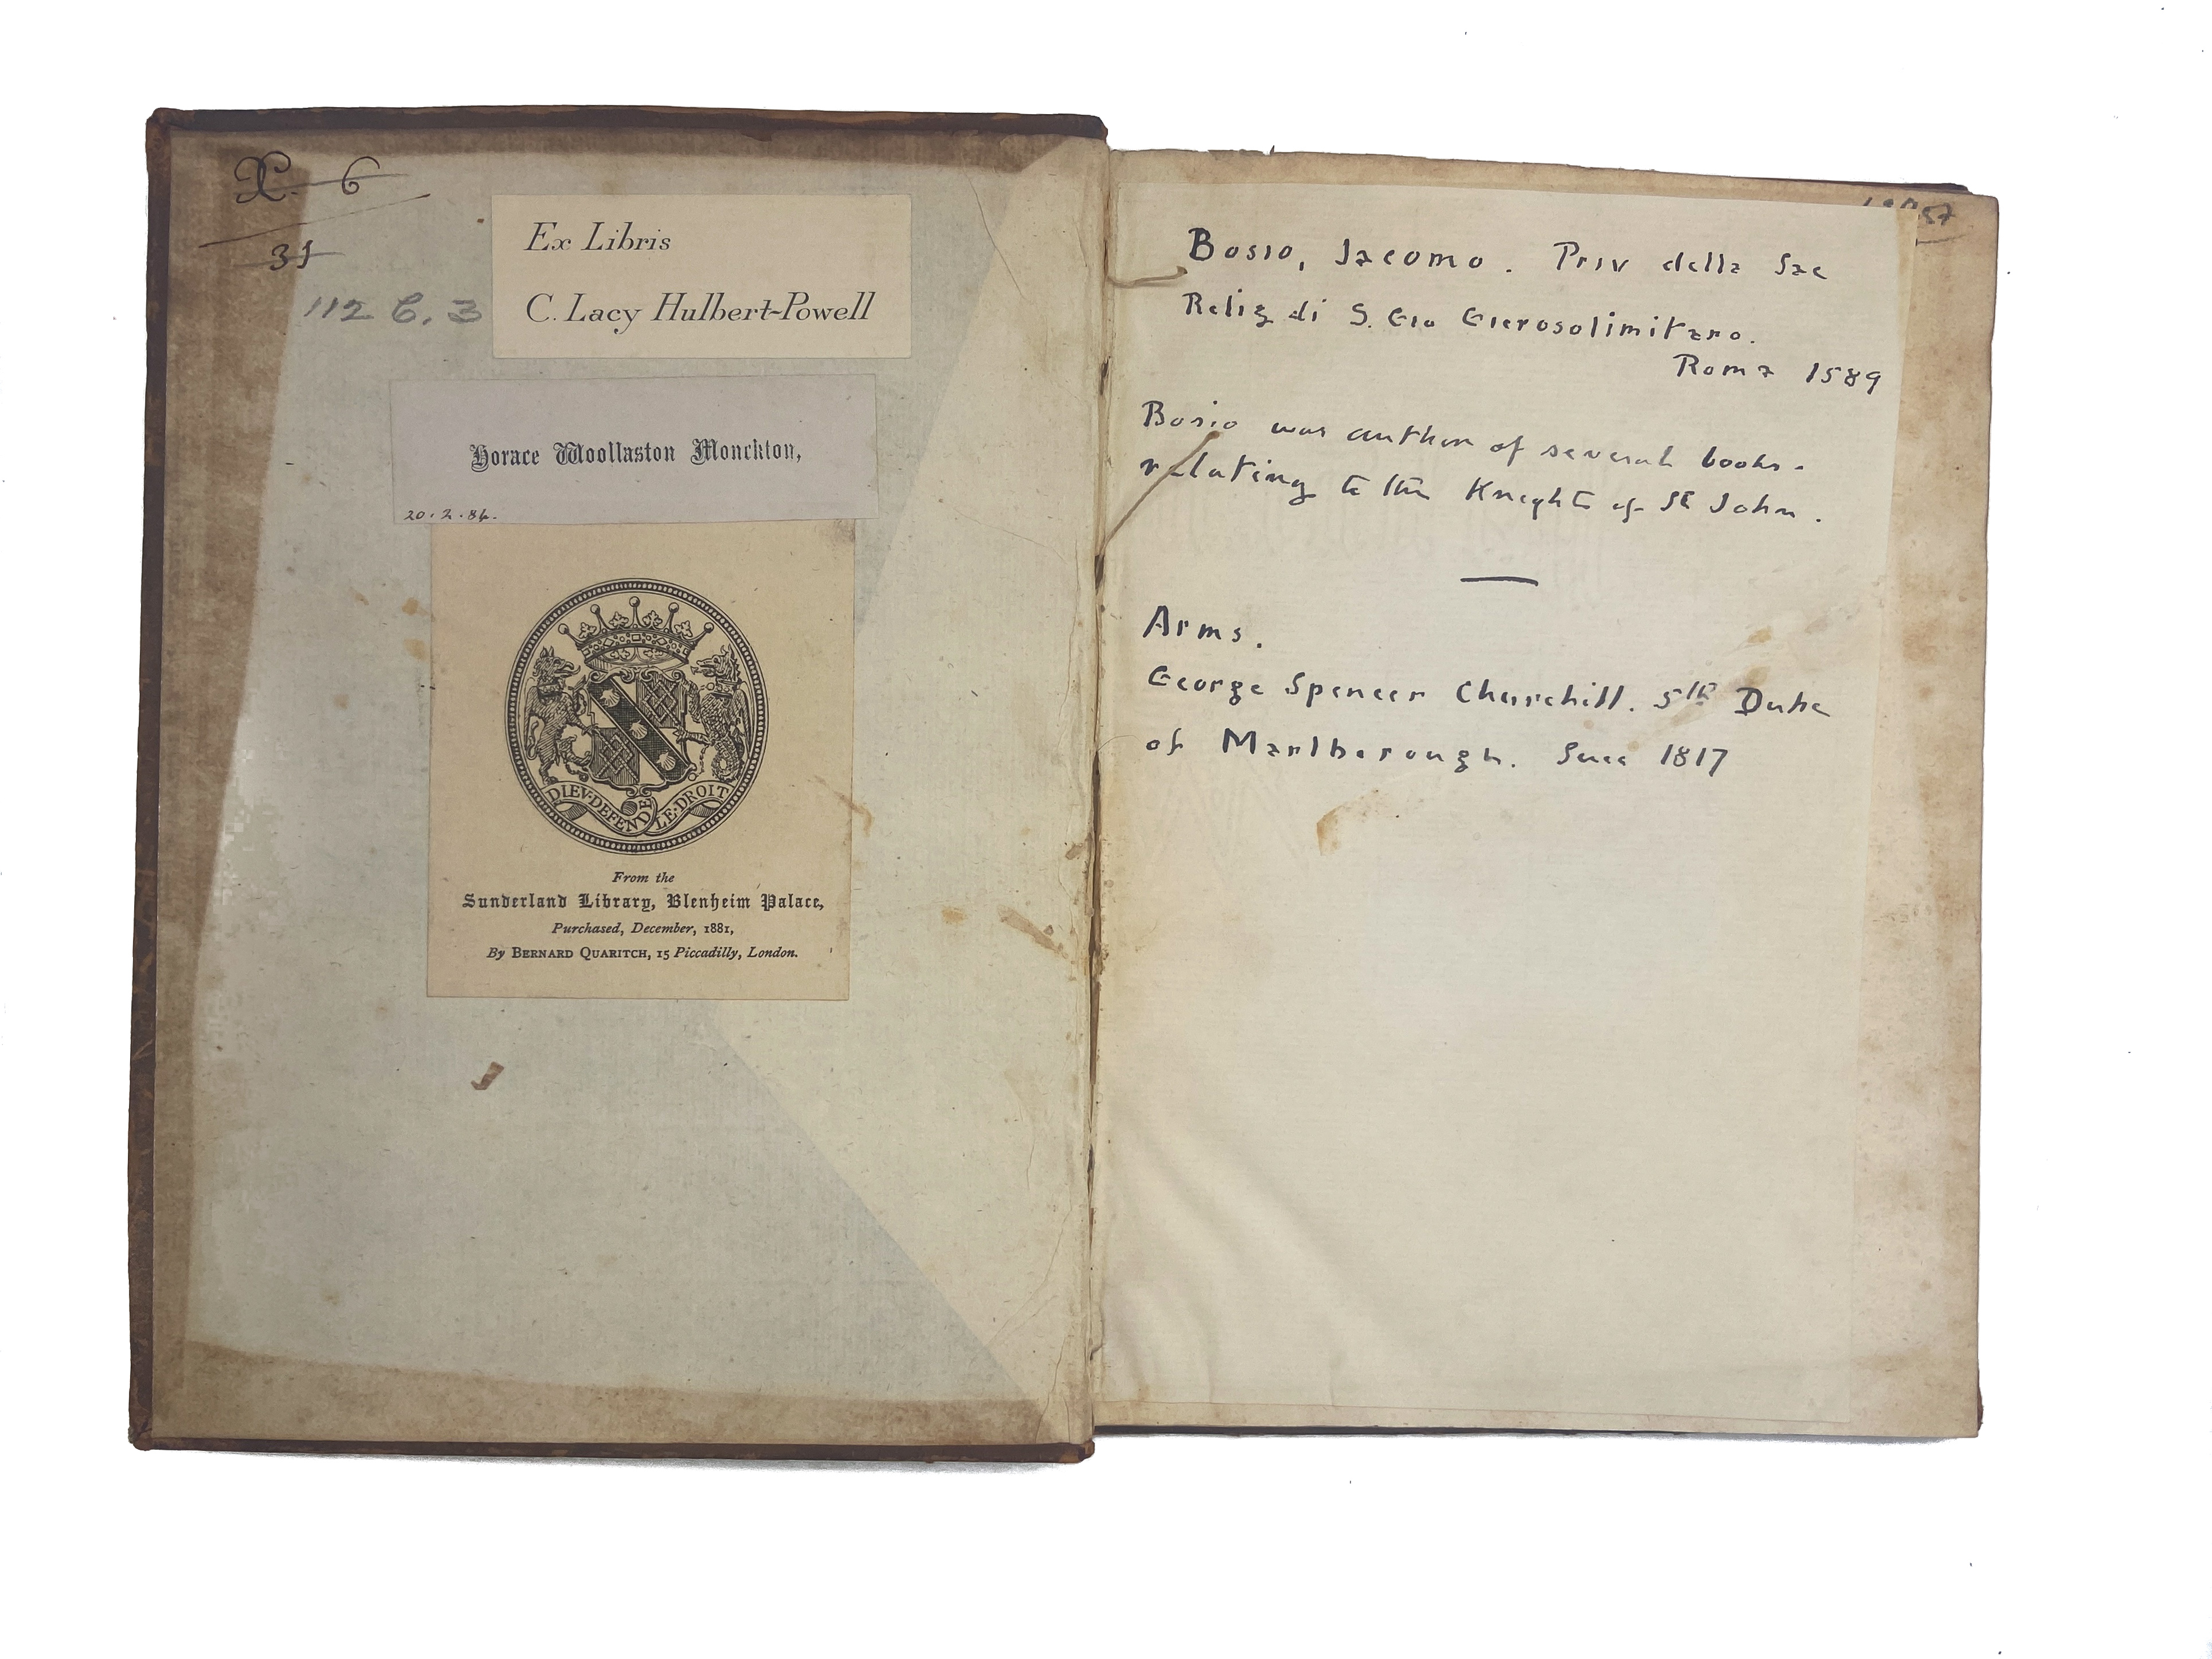 X. 6
31
112 C. 3
Ex Libris
C. Lacy Hulbert-Powell
Horace Woollaston Monckton,
20.2.84.
DIEV·DEFEND LE·DROIT
From the
Sunderland Library, Blenheim Palace,
Purchased, December, 1881,
By BERNARD QUARITCH, 15 Piccadilly, London.
Bosio, Iacomo. Priv della Sac
Relig di S. Gio Gierosolimitano.
Roma 1589
Bosio was author of several books
relating to the Knights of St John.
Arms.
George Spencer Churchill. 5th Duke
of Marlborough. Succ 1817